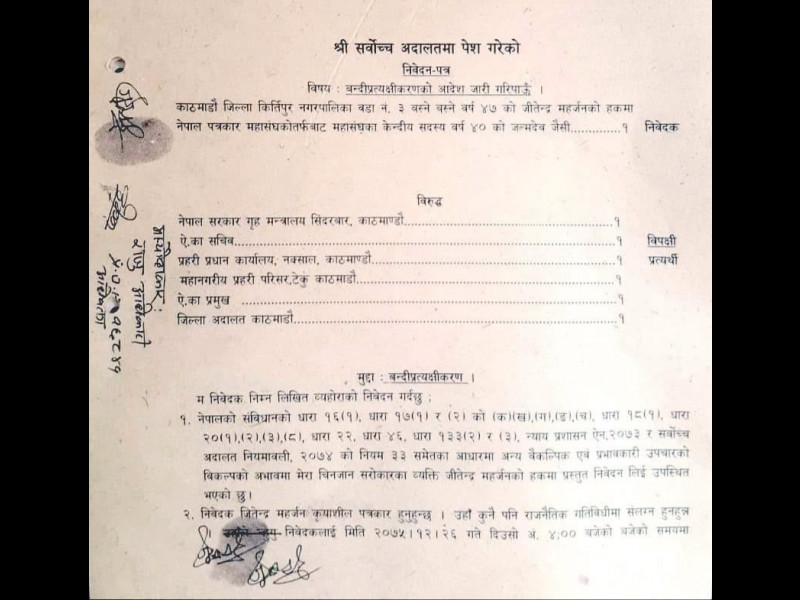 श्री सर्वोच्च अदालतमा पेश गरेको
निवेदन-पत्र
विषय : बन्दीप्रत्यक्षीकरणको आदेश जारी गरिपाऊँ ।
काठमाडौं जिल्ला किर्तिपुर नगरपालिका वडा नं. ३ बस्ने बस्ने वर्ष ४७ को जीतेन्द्र महर्जनको हकमा
नेपाल पत्रकार महासंघकोतर्फबाट महासंघका केन्दीय सदस्य वर्ष ४० को जन्मदेव जैसी..............१ निवेदक
विरुद्ध
नेपाल सरकार गृह मन्त्रालय सिंदरबार, काठमाण्डौ..............१
ऐ.का सचिब..............१ विपक्षी
प्रहरी प्रधान कार्यालय, नक्साल, काठमाण्डौ..............१ प्रत्यर्थी
महानगरीय प्रहरी परिसर,टेकु काठमाडौं..............१
ऐ.का प्रमुख ..............१
जिल्ला अदालत काठमाडौं..............१
मुद्दा : बन्दीप्रत्यक्षीकरण ।
म निवेदक निम्न लिखित व्यहोराको निवेदन गर्दछु :
१. नेपालको संबिधानको धारा १६(१), धारा १७(१) र (२) को (क)(ख),(ग),(ङ),(च), धारा १८(१), धारा
२०(१),(२),(३),(८), धारा २२, धारा ४६, धारा १३३(२) र (३), न्याय प्रशासन ऐन,२०७३ र सर्वोच्च
अदालत नियमावली, २०७४ को नियम ३३ समेतका आधारमा अन्य बैकल्पिक एवं प्रभावकारी उपचारको
बिकल्पको अभावमा मेरा चिनजान सरोकारका व्यक्ति जीतेन्द्र महर्जनको हकमा प्रस्तुत निवेदन लिई उपस्थित
भएको छु ।
२. निवेदक जितेन्द्र महर्जन कृयाशील पत्रकार हुनुहुन्छ । उहाँ कुनै पनि राजनैतिक गतिविधीमा संलग्न हुनुहुन्न
निवेदकलाई मिति २०७५।१२।२६ गते दिउसो अं. ४:०० बजेको बजेको समयमा